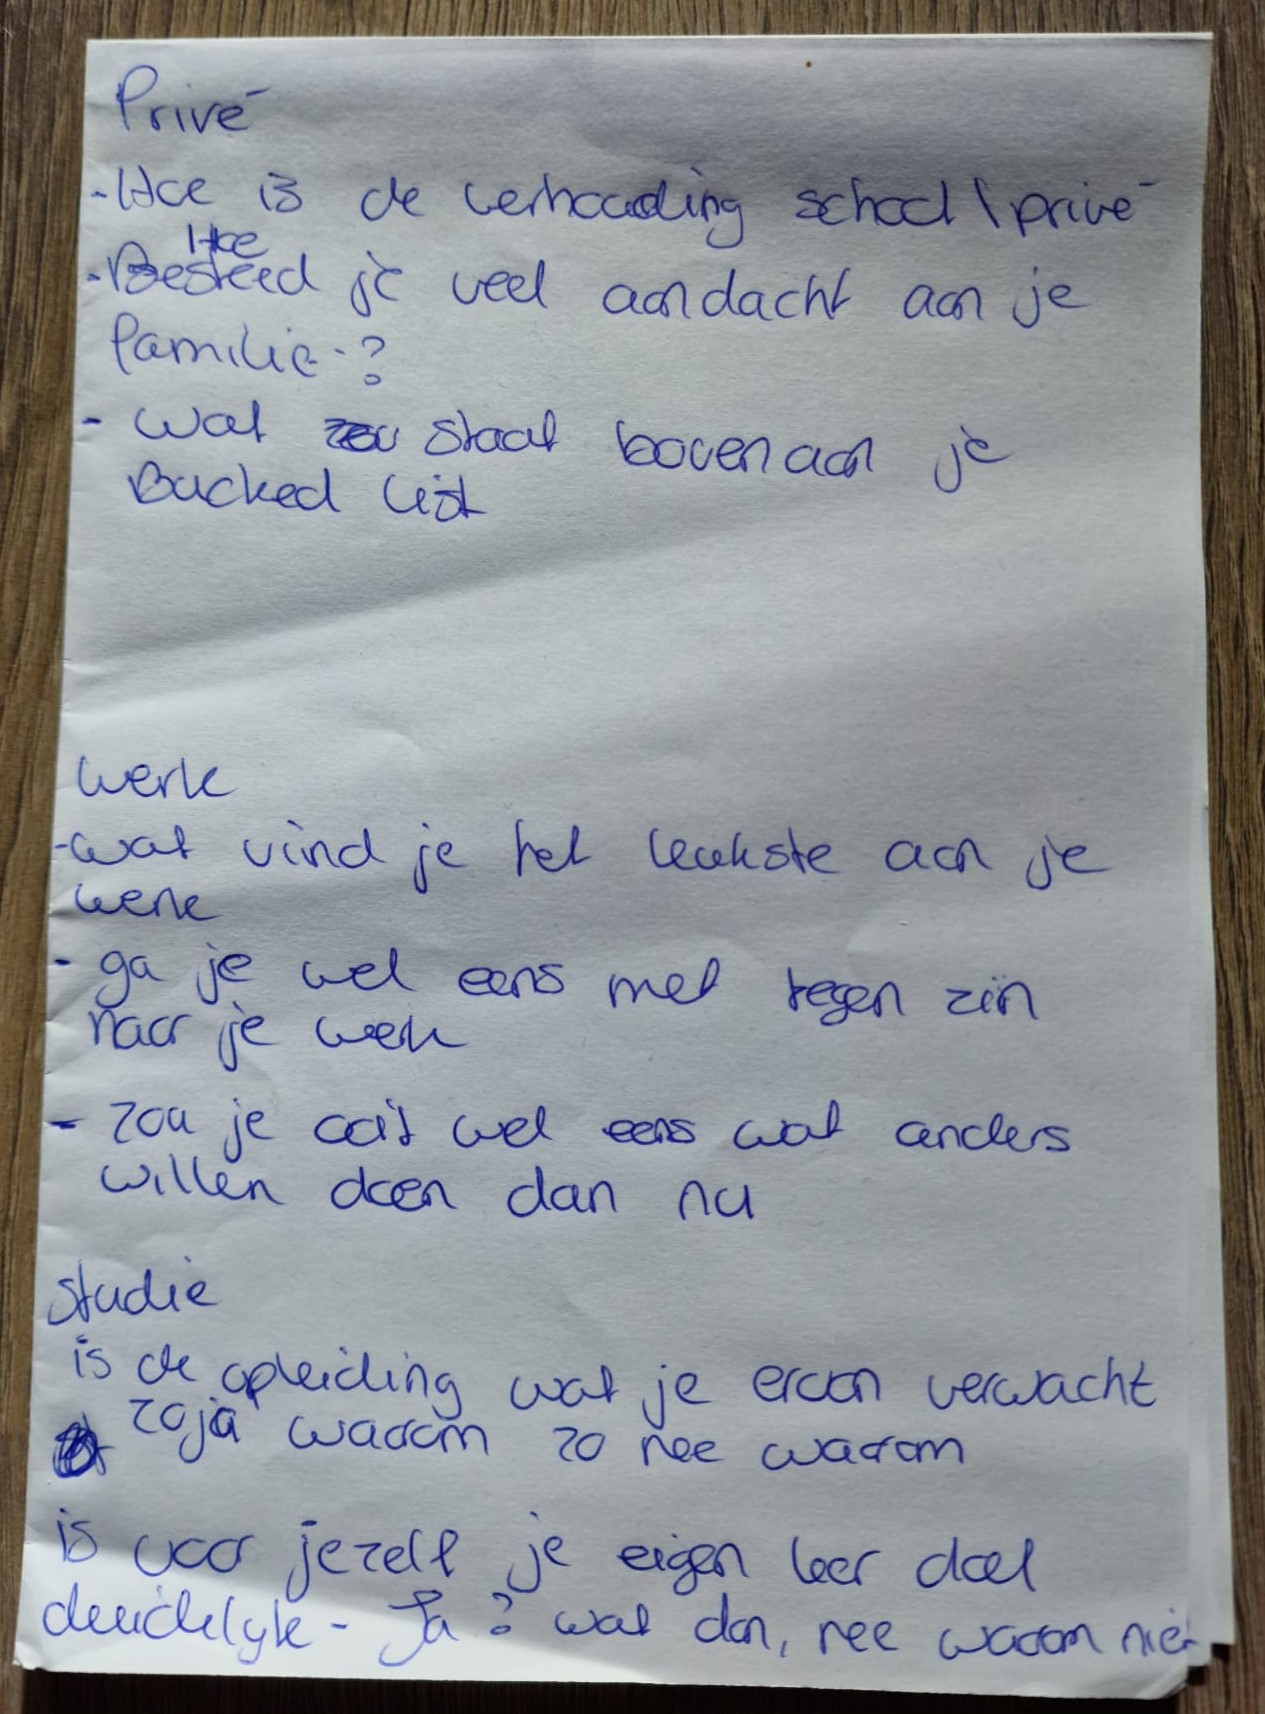 Privé
- Hoe is de verhouding school \ privé
Hoe
- Besteed je veel aandacht aan je
familie - ?
- wat zou staat boven aan je
Bucked list
werk
- wat vind je het leukste aan je
werk
- ga je wel eens met tegen zin
naar je werk
- zou je ooit wel eens wat anders
willen doen dan nu
studie
is de opleiding wat je ervan verwacht
zo ja waarom zo nee waarom
is voor jezelf je eigen leer doel
duidelyk - Ja ? wat dan, nee waarom niet